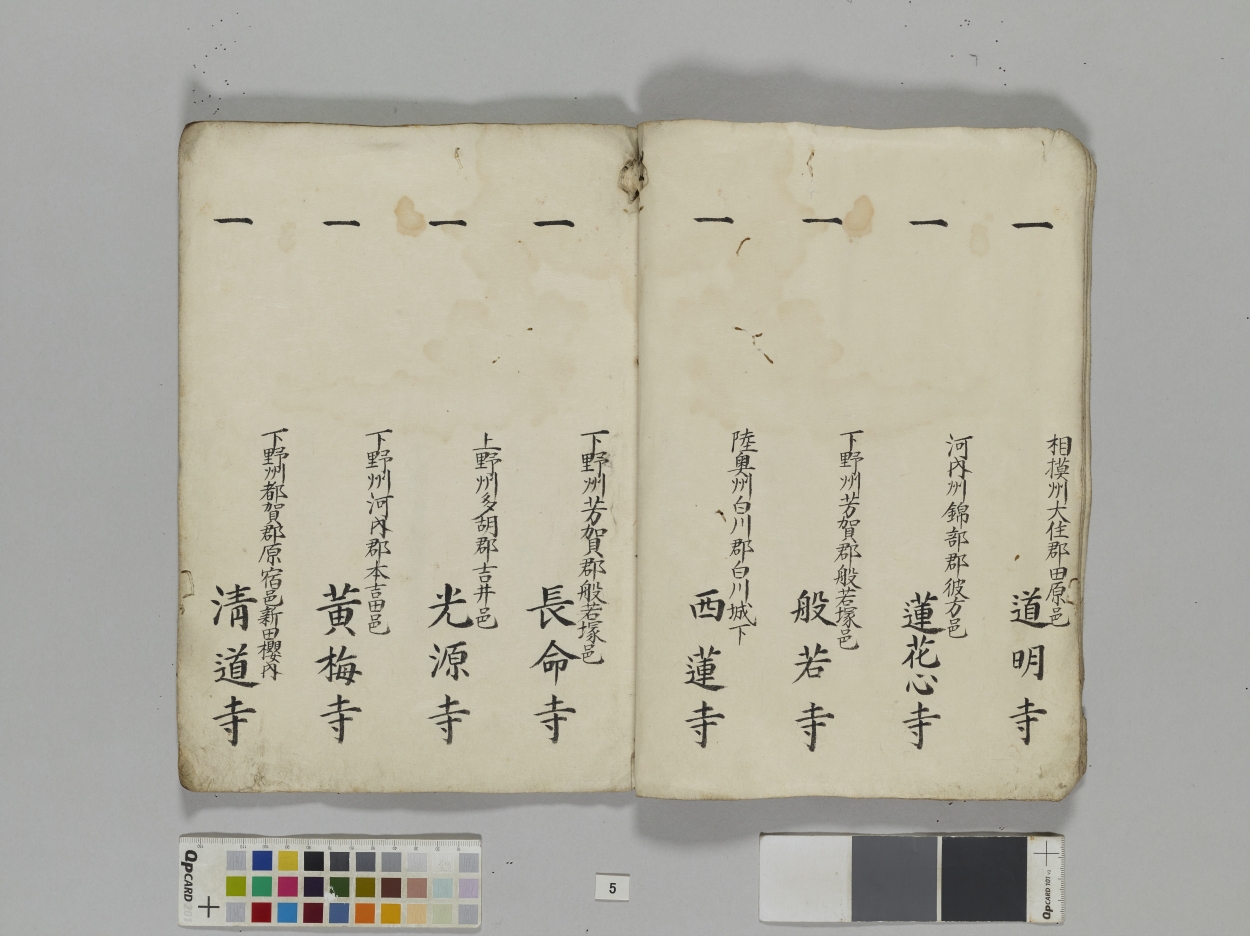 一
相摸州大住郡田原邑
道明寺
一
河內州錦部郡彼方邑
蓮花心寺
一
下野州芳賀郡般若塚邑
般若寺
一
陸奥州白川郡白川城下
西蓮寺
一
下野州芳賀郡般若塚邑
長命寺
一
上野州多胡郡吉井邑
光源寺
一
下野州河內郡本吉田邑
黃梅寺
一
下野州都賀郡原宿邑新田櫻內
淸道寺
QPCARD 201
5
QPCARD 101